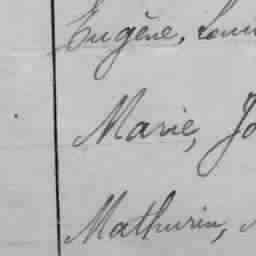 Eugène, Louis
Marie, Jo
Mathurin,